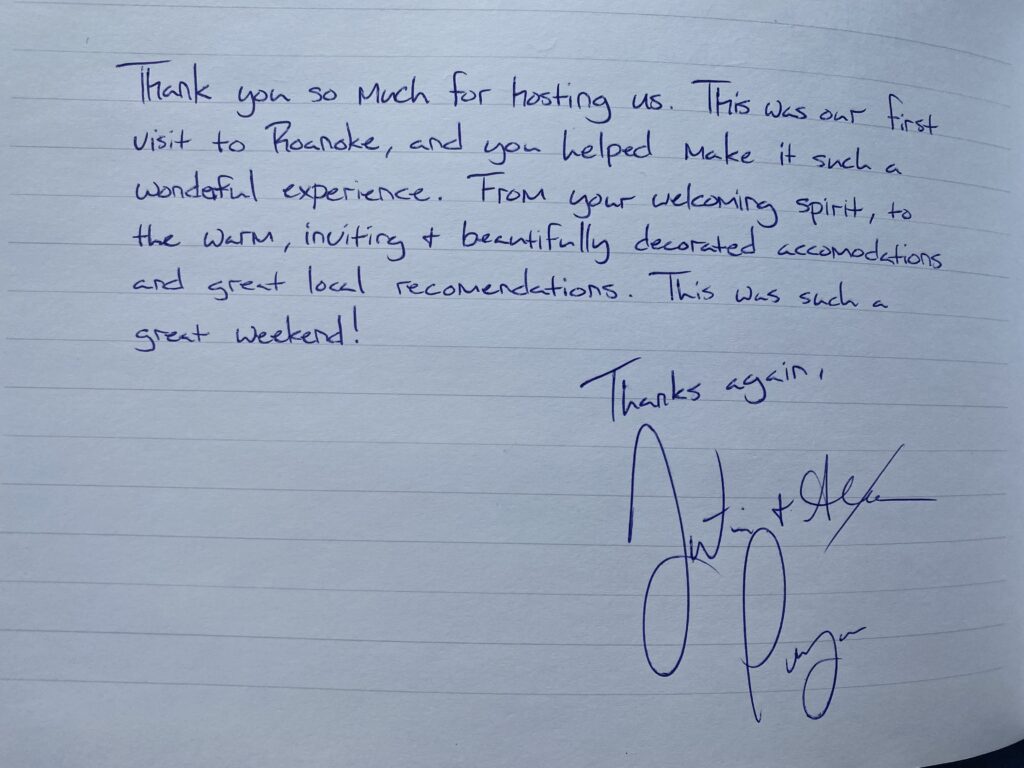 Thank you so much for hosting us. This was our first
visit to Roanoke, and you helped make it such a
wonderful experience. From your welcoming spirit, to
the warm, inviting + beautifully decorated accomodations
and great local recomendations. This was such a
great weekend!
Thanks again,
Justin + Alex